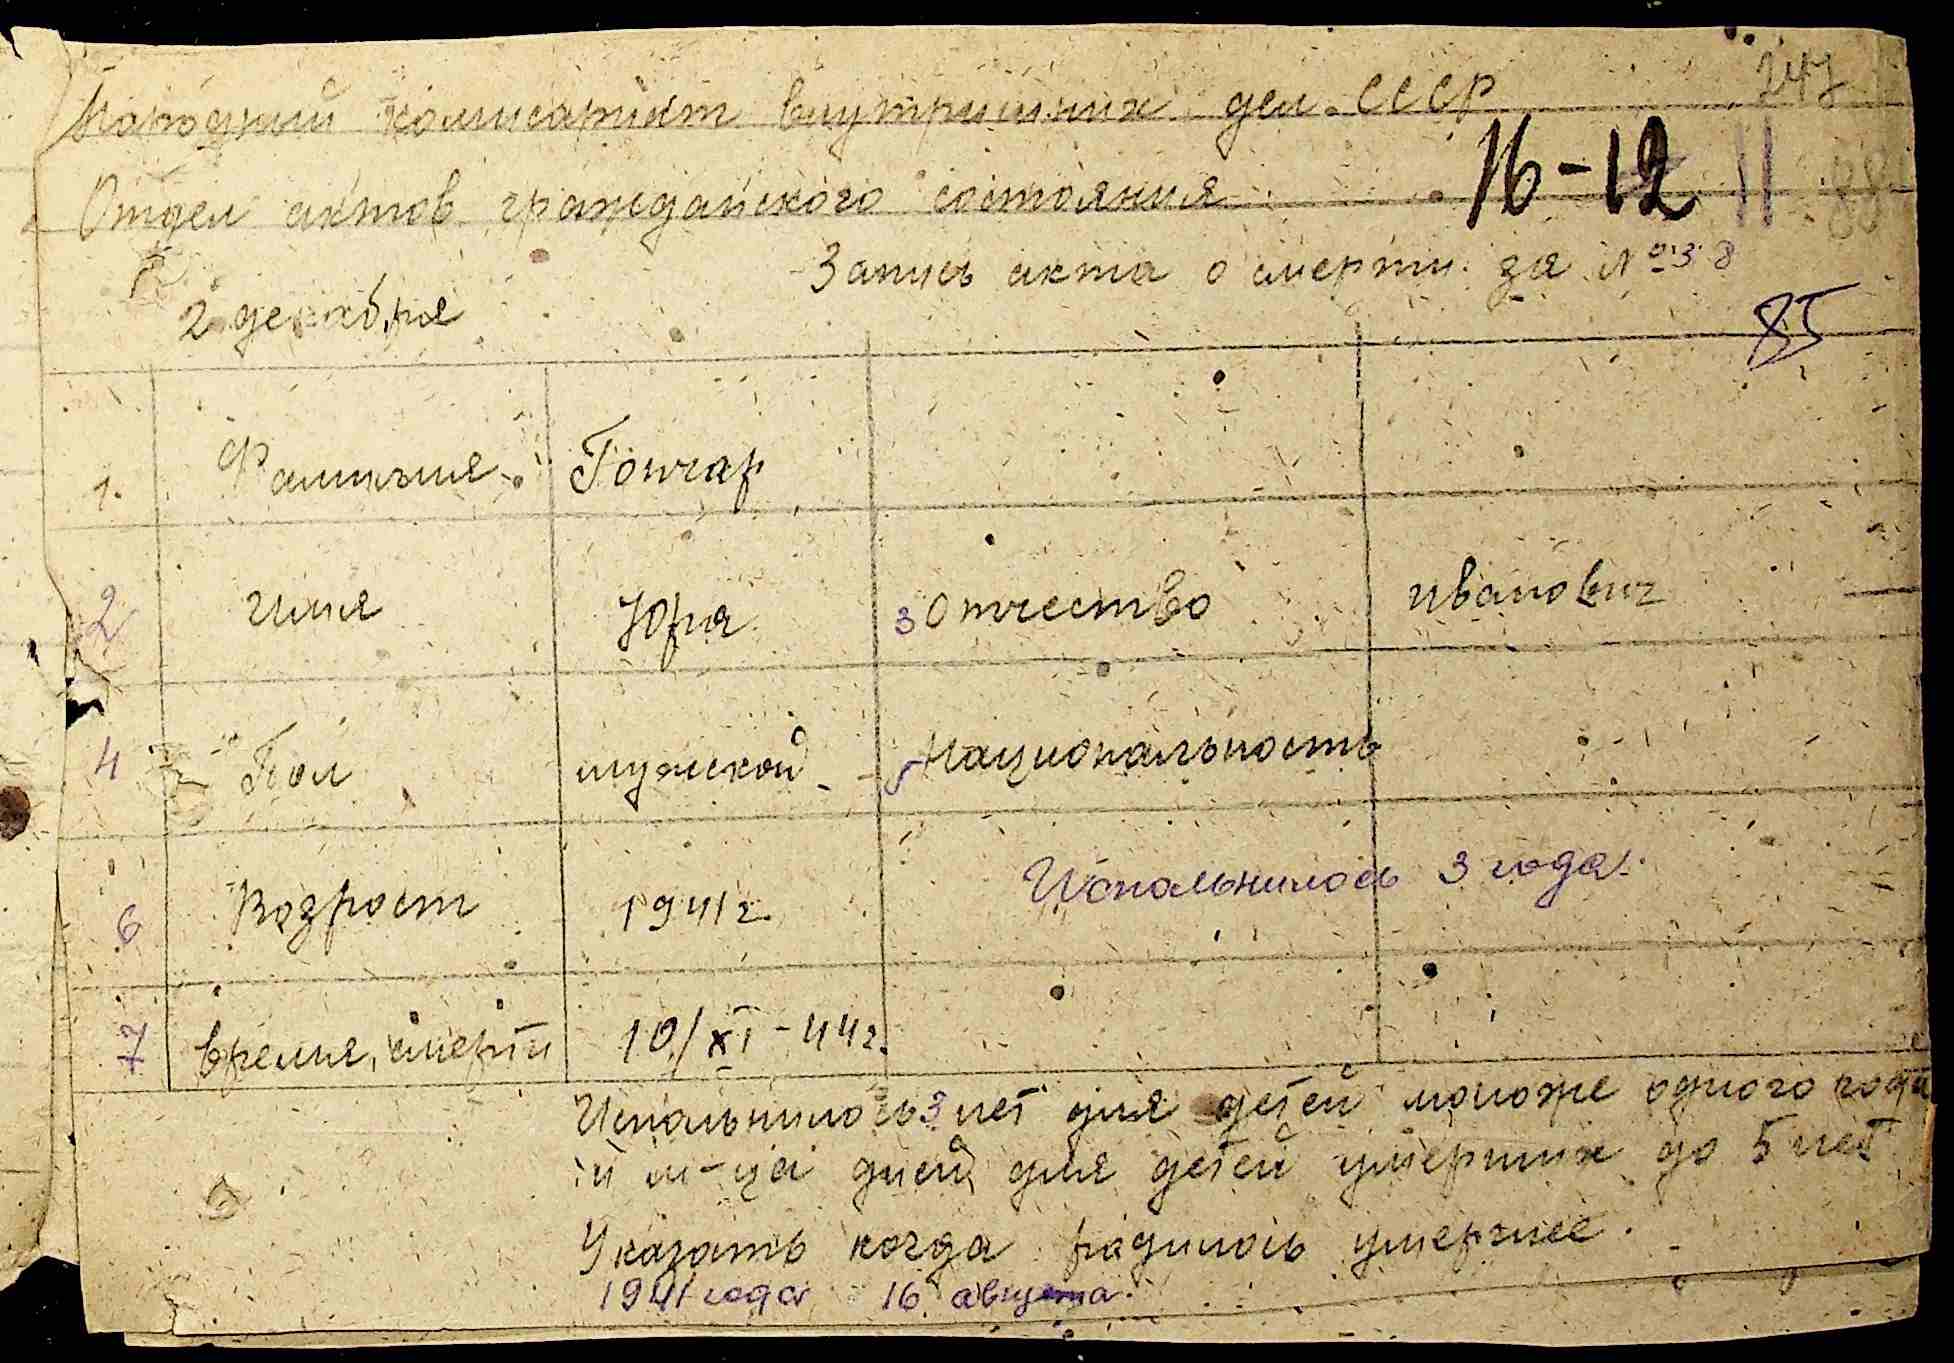 247
Народний комисариат внутриших дел СССР
16-12 11 88
Отдел актов гражданского состояния
Запись акта о смерти за № 38
2 декабря
85
1. Фамилия Гончар
2 имя Юрия 3 Отчество иванович
4 Пол мужской 5 Национальность
6 Возрост 1941г. Испольнилось 3 года.
7 время смерти 10/XI-44г.
Испольнилось 3 лет для детей моложе одного года
и м-ца дней для детей умерших до 5 лет
Указать когда радилось умершее.
1941 года 16 августа.